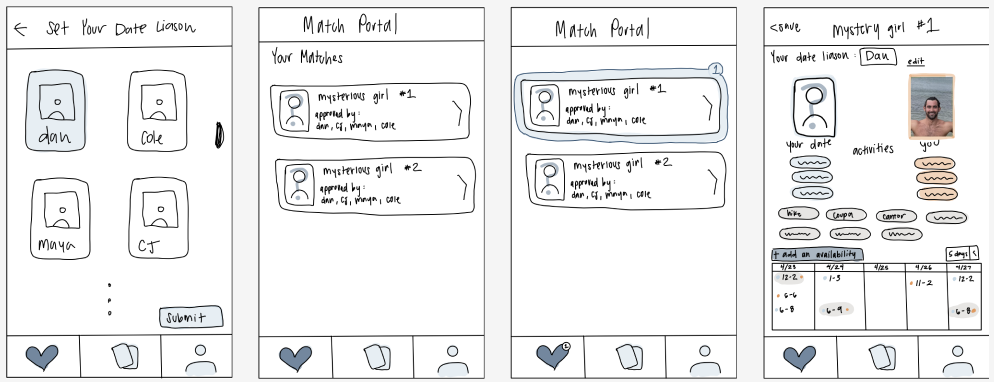 ← Set Your Date Liason
dan
Cole
Maya
CJ
Submit
Match Portal
Your Matches
mysterious girl #1
approved by:
dan, cj, maya, cole
mysterious girl #2
approved by:
dan, cj, maya, cole
Match Portal
1
mysterious girl #1
approved by:
dan, cj, maya, cole
mysterious girl #2
approved by:
dan, cj, maya, cole
<save mystery girl #1
Your date liason: Dan edit
your date activities you
hike coupa cantor
+ add an availability 5 days <
4/23 4/24 4/25 4/26 4/27
12-2 1-3 11-2 12-2
6-8 6-9 6-8